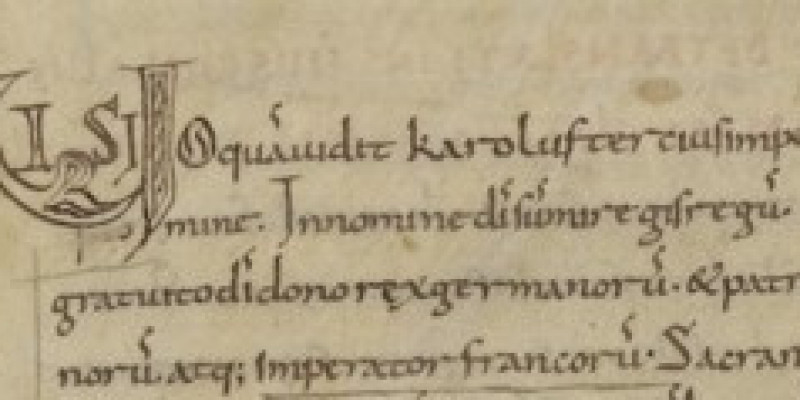 VISIO quā uidit karolus tercius impe
mine. In nomine dī sūmi regis regū.
gratuito dī dono ręx germanorū. & patr
norū. atq; imperator francorū. Sacran